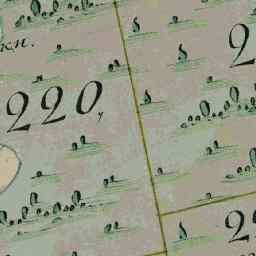 кн.
220,
2
2